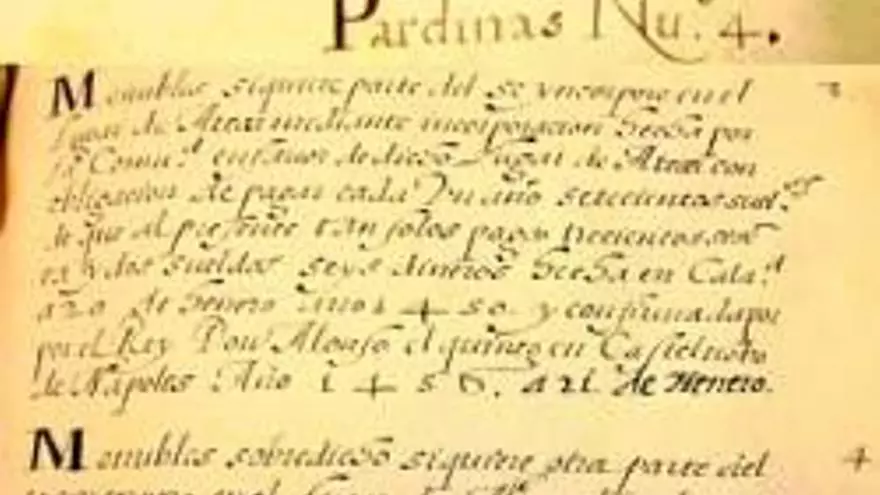 Pardinas Nu.º 4.
Monubles siquiere parte del se yncorporo en el 3
Lugar de Ateca mediante incorporacion hecha por
la Comu.d en favor de dicho Lugar de
obligacion de pagar cada Un año setecientos suel.os
de que al presente tan solos pagan trecientos
ta y dos sueldos seys dineros hecha en Cala.d
a 20 de Henero año 1450. y confirmada por
por el Rey Don Alonso el quinto en Castelnobo
de Napoles Año 1456. a 21 de Henero.
Monubles sobredicho siquiere otra parte del 4
en el Lugar de